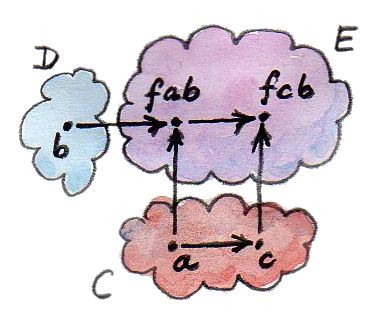 D E
fab fcb
b
a c
C